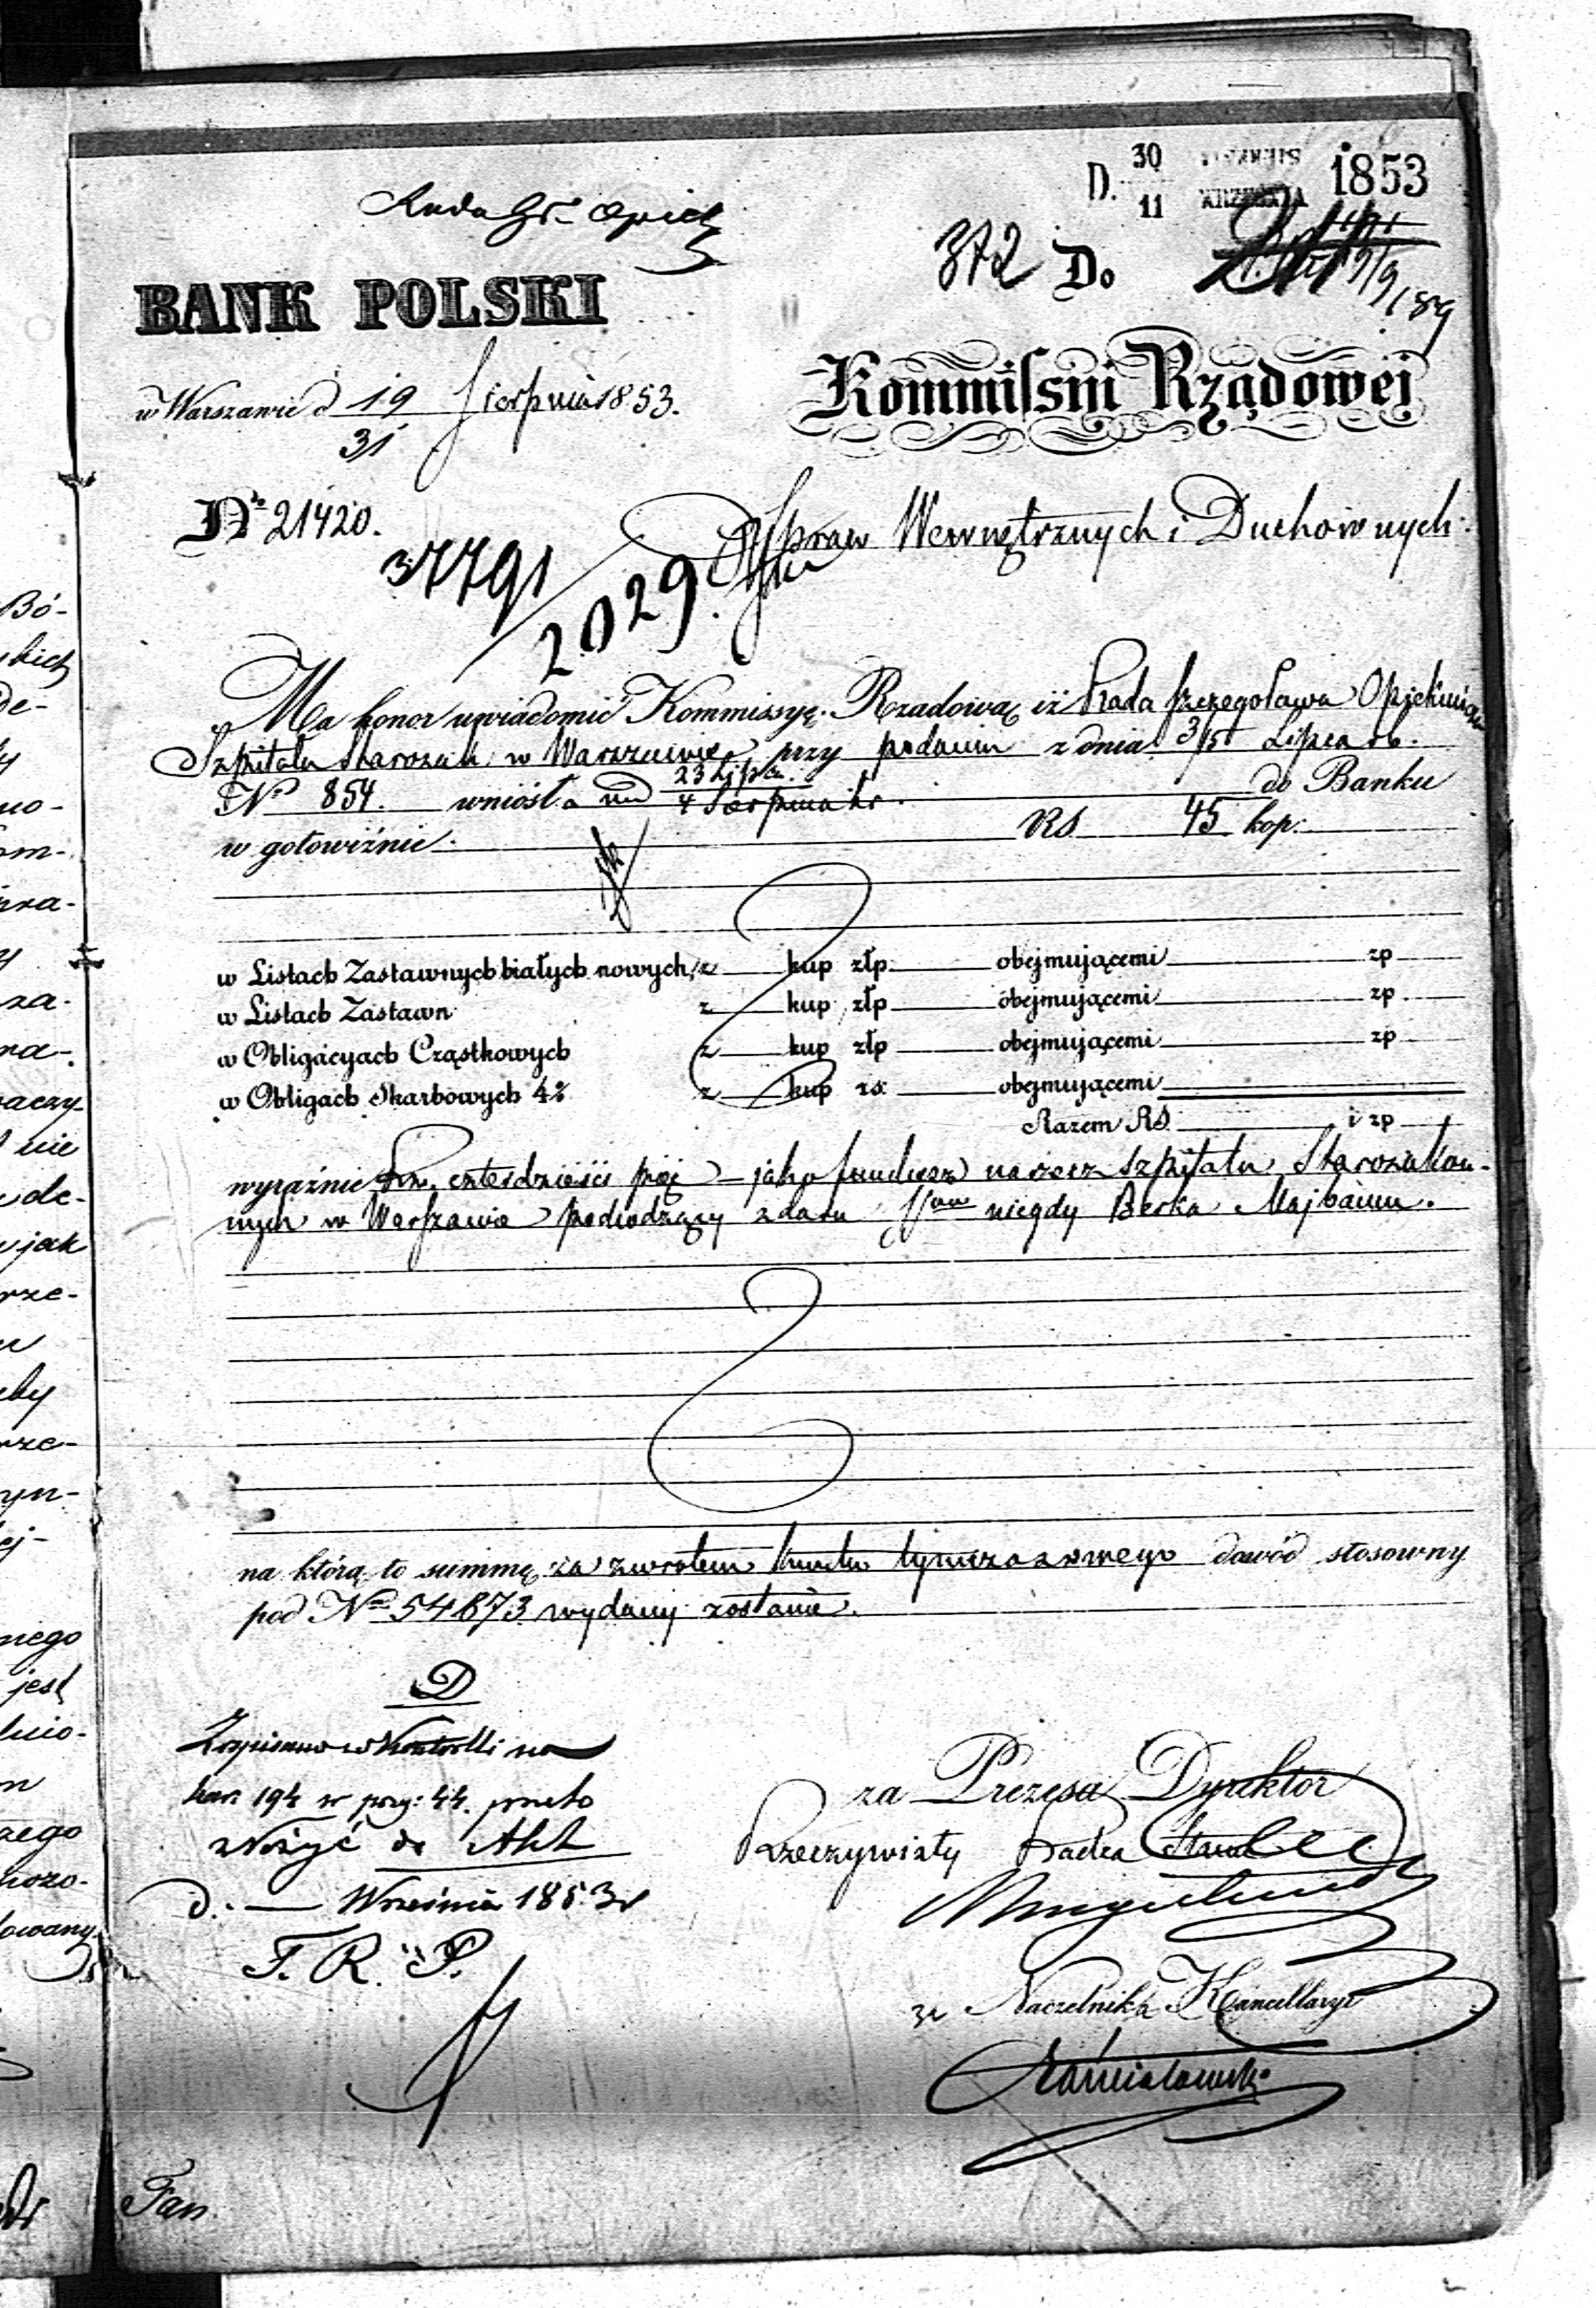 D. 30 1853
11
372 Do
BANK POLSKI
w Warszawie d 19 Sierpnia 1853.
31
Kommissyi Rządowej
No 21420.
Spraw Wewnętrznych i Duchownych
37791
2029
Ma honor uwiadomić Kommissyę Rządową iż Rada Szczegółowa Opiekuńcza
Szpitala Starozak: w Warszawie przy podaniu z dnia 3/15 Lipca rb.
No 854. wniosła 23 Lipca do Banku
4 Sierpnia br.
w gotowiźnie. RS 45 kop:
w Listach Zastawnych białych nowych z kup złp obejmującemi zp
w Listach Zastawn z kup złp obejmującemi zp
w Obligacyach Cząstkowych z kup złp obejmującemi zp
w Obligach Skarbowych 4% z kup rs. obejmującemi
Razem RS. i zp
wyraźnie Rs. czterdzieści pięć jako fundusz na rzecz Szpitala Starozakon-
nych w Warszawie pochodzący z daru niegdy Berka Majbaum.
na którą to summę za zwrotem kwitu tymczasowego dowód stosowny
pod No 54673 wydany zostanie.
D
Zapisano w Kontrolli na
kar. 194 w poz: 44. przeto
złożyć do Akt
d. — Września 1853 r
T. R. P.
za Prezesa Dyrektor
Rzeczywisty Radca Stanu
za Naczelnika Kancellaryi